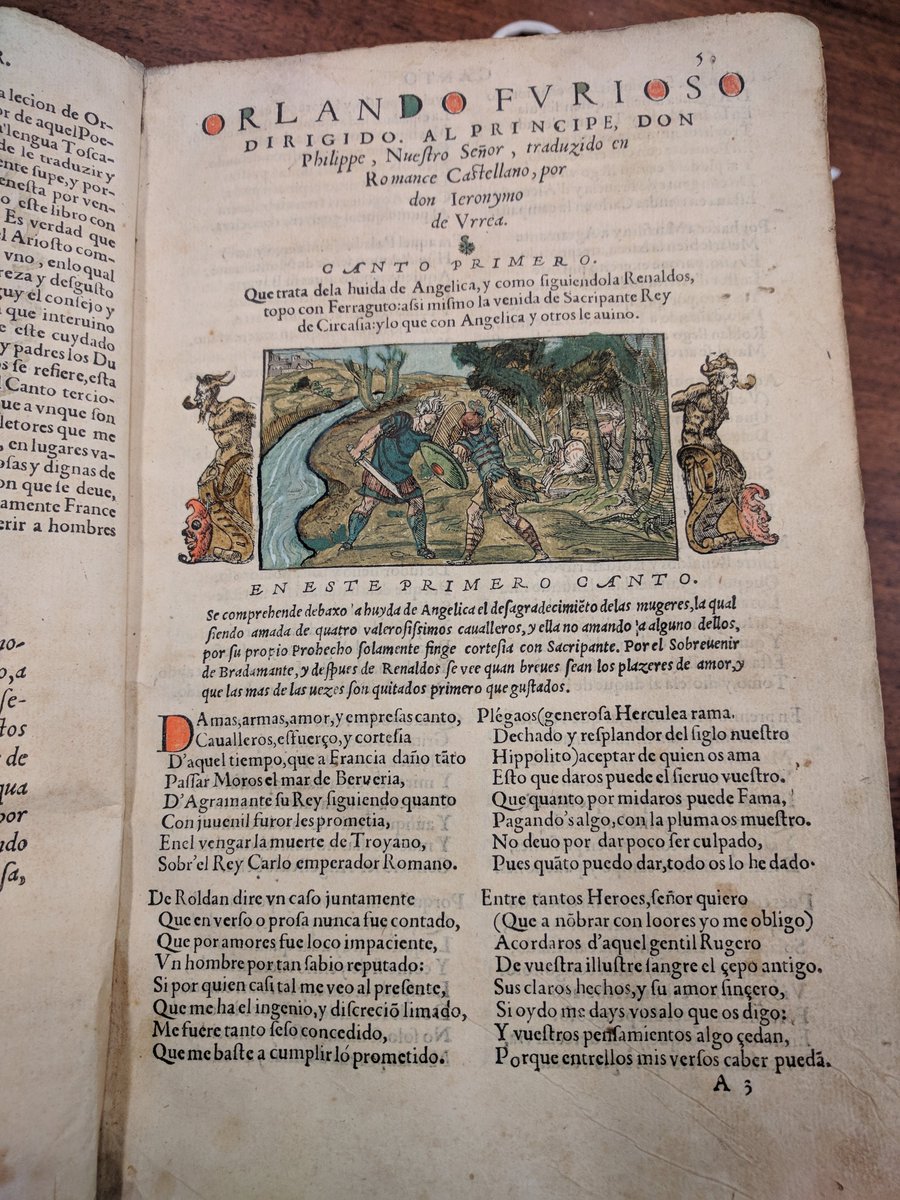 R.
a lecion de Or-
or de aquel Poe-
a lengua Tosca-
de le traduzir y
ente supe, y por-
enesta por ven-
o este libro con
Es verdad que
el Ariosto com-
vno, enlo qual
reza y desgusto
guy el consejo y
que interuino
e este cuydado
y padres los Du
os se refiere, esta
l Canto tercio-
ue a vnque son
letores que me
, en lugares va-
osas y dignas de
on que se deue,
amente France
erir a hombres
no-
o, a
se-
tos
de
qua
por
ndo
sa,
5
ORLANDO FVRIOSO
DIRIGIDO. AL PRINCIPE, DON
Philippe, Nuestro Señor, traduzido en
Romance Castellano, por
don Ieronymo
de Vrrea.
CANTO PRIMERO.
Que trata dela huida de Angelica, y como siguiendola Renaldos,
topo con Ferraguto: assi mismo la venida de Sacripante Rey
de Circasia: y lo que con Angelica y otros le auino.
EN ESTE PRIMERO CANTO.
Se comprehende debaxo 'a huyda de Angelica el desagradecimiẽto delas mugeres, la qual
siendo amada de quatro valerosissimos caualleros, y ella no amando 'a alguno dellos,
por su propio Prohecho solamente finge cortesia con Sacripante. Por el Sobreuenir
de Bradamante, y despues de Renaldos se vee quan breues sean los plazeres de amor, y
que las mas de las uezes son quitados primero que gustados.
DAmas, armas, amor, y empresas canto,
Caualleros, esfuerço, y cortesia
D'aquel tiempo, que a Francia daño tãto
Passar Moros el mar de Berueria,
D'Agramante su Rey siguiendo quanto
Con juuenil furor les prometia,
Enel vengar la muerte de Troyano,
Sobr'el Rey Carlo emperador Romano.
De Roldan dire vn caso juntamente
Que en verso o prosa nunca fue contado,
Que por amores fue loco impaciente,
Vn hombre por tan sabio reputado:
Si por quien casi tal me veo al presente,
Que me ha el ingenio, y discreciõ limado,
Me fuere tanto seso concedido,
Que me baste a cumplir ló prometido.
Plégaos (generosa Herculea rama.
Dechado y resplandor del siglo nuestro
Hippolito) aceptar de quien os ama
Esto que daros puede el sieruo vuestro.
Que quanto por mi daros puede Fama,
Pagando's algo, con la pluma os muestro.
No deuo por dar poco ser culpado,
Pues quãto puedo dar, todo os lo he dado.
Entre tantos Heroes, señor quiero
(Que a nõbrar con loores yo me obligo)
Acordaros d'aquel gentil Rugero
De vuestra illustre sangre el çepo antigo.
Sus claros hechos, y su amor sinçero,
Si oydo me days vos alo que os digo:
Y vuestros pensamientos algo çedan,
Porque entrellos mis versos caber puedã.
A 3